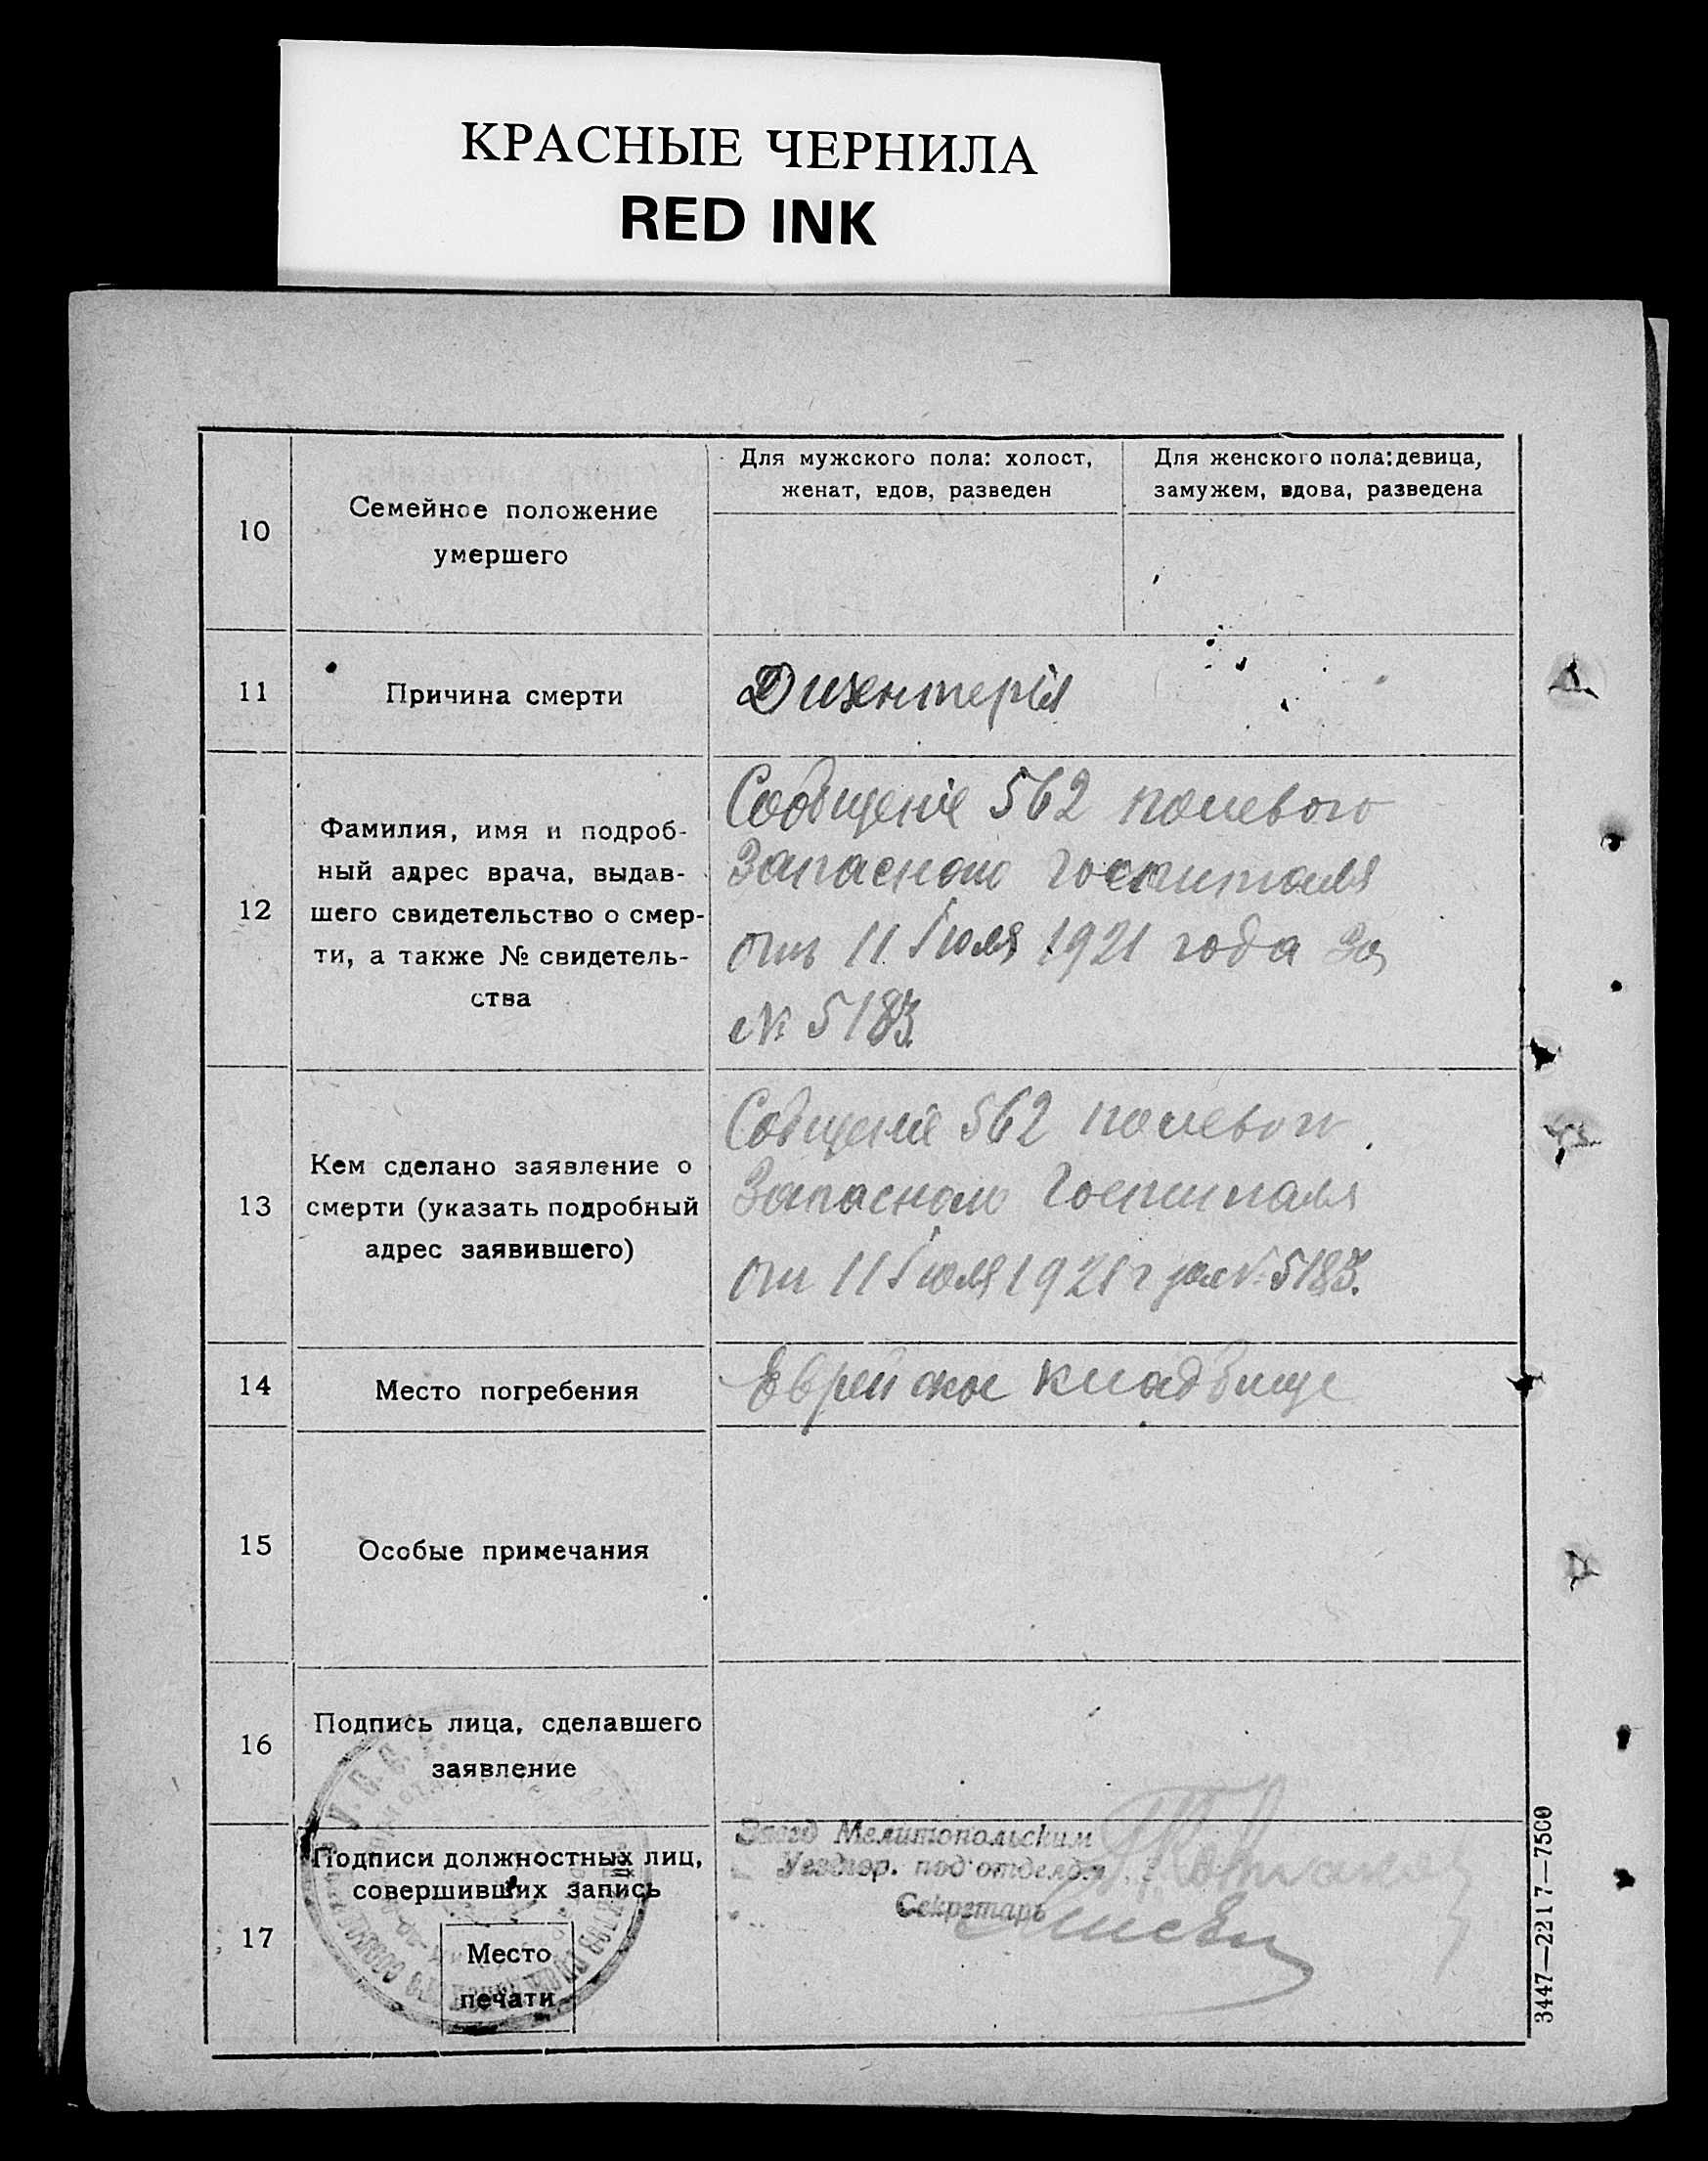 КРАСНЫЕ ЧЕРНИЛА
RED INK
10
Семейное положение
умершего
Для мужского пола: холост,
женат, вдов, разведен
Для женского пола: девица,
замужем, вдова, разведена
11
Причина смерти
Дизентерія
12
Фамилия, имя и подроб-
ный адрес врача, выдав-
шего свидетельство о смер-
ти, а также № свидетель-
ства
Сообщеніе 562 полевого
Запасного Госпиталя
отъ 11 Іюля 1921 года За
№ 5183.
13
Кем сделано заявление о
смерти (указать подробный
адрес заявившего)
Собщеніе 562 полевого
Запасного Госпиталя
от 11 Іюля 1921 г за № 5183.
14
Место погребения
Еврейское кладбище
15
Особые примечания
16
Подпись лица, сделавшего
заявление
17
Подписи должностных лиц,
совершивших запись
Место
печати
У. С. С. Р.
Завед Мелитопольским
Уездгор. подотделом
Секретарь
3447—2217—7500